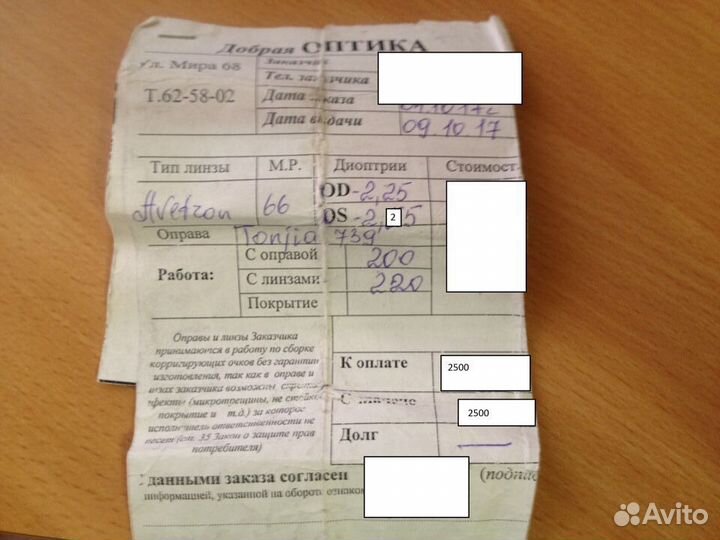 Добрая ОПТИКА
Ул. Мира 68
Заказчик
Тел. заказчика
Т.62-58-02
Дата заказа
Дата выдачи 09.10.17
Тип линзы М.Р. Диоптрии Стоимост
66 OD -2,25
OS -2, 2 5
Оправа Tonjia 739
Работа:
С оправой 200
С линзами 220
Покрытие
Оправы и линзы Заказчика
принимаются в работу по сборке
корригирующих очков без гарантии
изготовления, так как в оправе и
линзах заказчика возможны скрытые
эфекты (микротрещины, не стойкое
покрытие и т.д.) за которое
исполнитель ответственности не
несет (ст. 35 Закон о защите прав
потребителя)
К оплате 2500
2500
Долг —
С данными заказа согласен (подпис
информацией, указанной на обороте ознаком
Avito